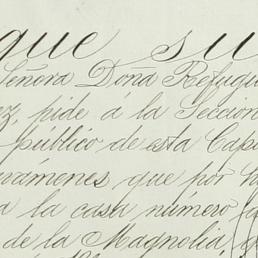 que su
Señora Doña Refugi
ez, pide á la Seccion
público de esta Cap
vámenes que por h
a la casa numero
de la Magnolia,